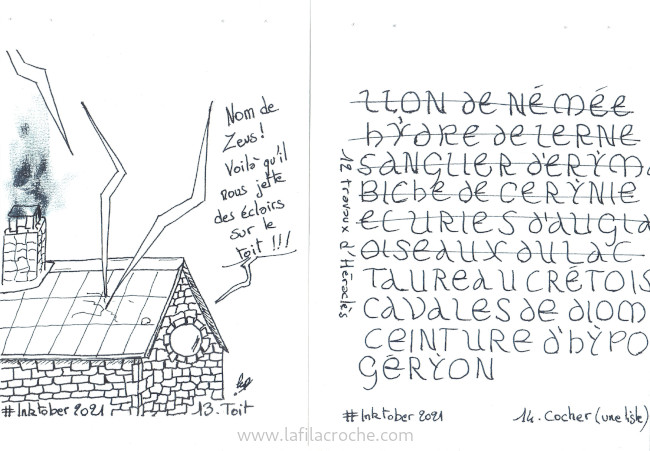 Nom de
Zeus!
Voilà qu'il
nous jette
des éclairs
sur le
toit !!!
#Inktober 2021
13. Toit
12 travaux d'Héraclès
LION de NÉMÉE
hYDRE de LERNE
SANGLIER d'ERYMA
BICHE de CERYNIE
ECURIES d'AUGIA
OISEAUX du LAC
TAUREAU CRÉTOIS
CAVALES de DIOM
CEINTURE d'hYPO
GÉRYON
#Inktober 2021
14. Cocher (une liste)
www.lafilacroche.com